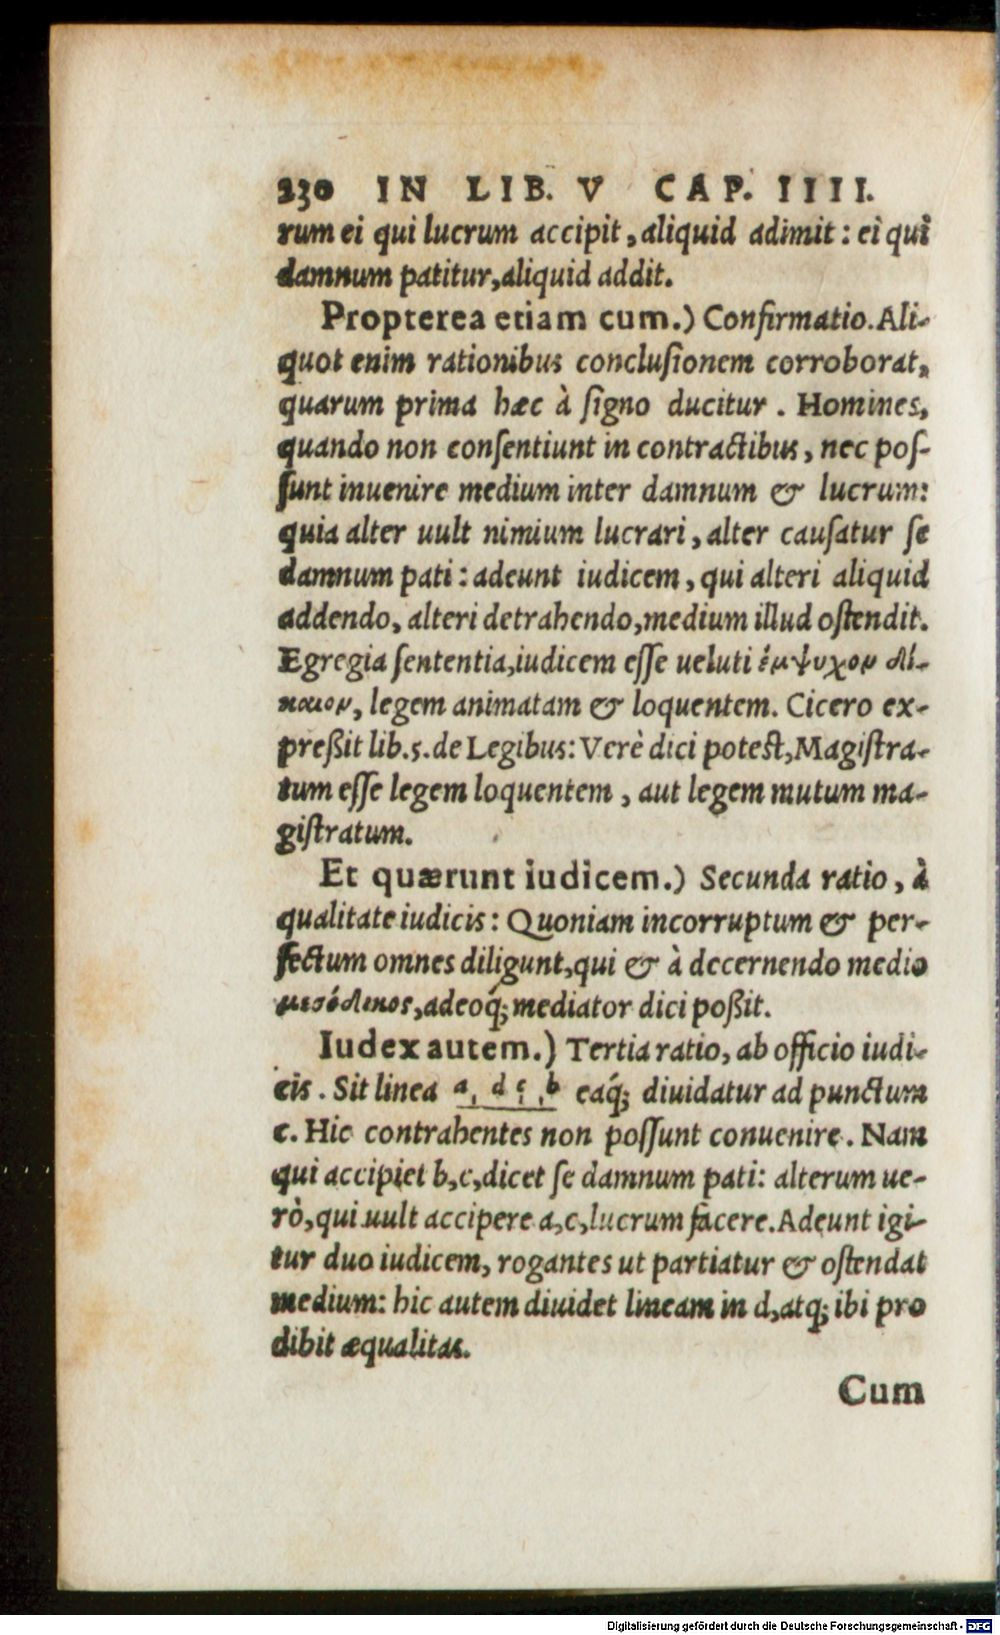 230 IN LIB. V CAP. IIII.
rum ei qui lucrum accipit, aliquid adimit: ei qui
damnum patitur, aliquid addit.
Propterea etiam cum.) Confirmatio. Ali-
quot enim rationibus conclusionem corroborat,
quarum prima hæc à signo ducitur. Homines,
quando non consentiunt in contractibus, nec pos-
sunt inuenire medium inter damnum & lucrum:
quia alter uult nimium lucrari, alter causatur se
damnum pati: adeunt iudicem, qui alteri aliquid
addendo, alteri detrahendo, medium illud ostendit.
Egregia sententia, iudicem esse ueluti ἔμψυχον δί-
καιον, legem animatam & loquentem. Cicero ex-
preßit lib. 5. de Legibus: Verè dici potest, Magistra-
tum esse legem loquentem, aut legem mutum ma-
gistratum.
Et quærunt iudicem.) Secunda ratio, à
qualitate iudicis: Quoniam incorruptum & per-
fectum omnes diligunt, qui & à decernendo medio
μεσόδικος, adeoq́; mediator dici poßit.
Iudex autem.) Tertia ratio, ab officio iudi-
cis. Sit linea a, d c, b eaq́; diuidatur ad punctum
c. Hic contrahentes non possunt conuenire. Nam
qui accipiet b, c, dicet se damnum pati: alterum ue-
rò, qui uult accipere a, c, lucrum facere. Adeunt igi-
tur duo iudicem, rogantes ut partiatur & ostendat
medium: hic autem diuidet lineam in d, atq; ibi pro
dibit æqualitas.
Cum
Digitalisierung gefördert durch die Deutsche Forschungsgemeinschaft - DFG